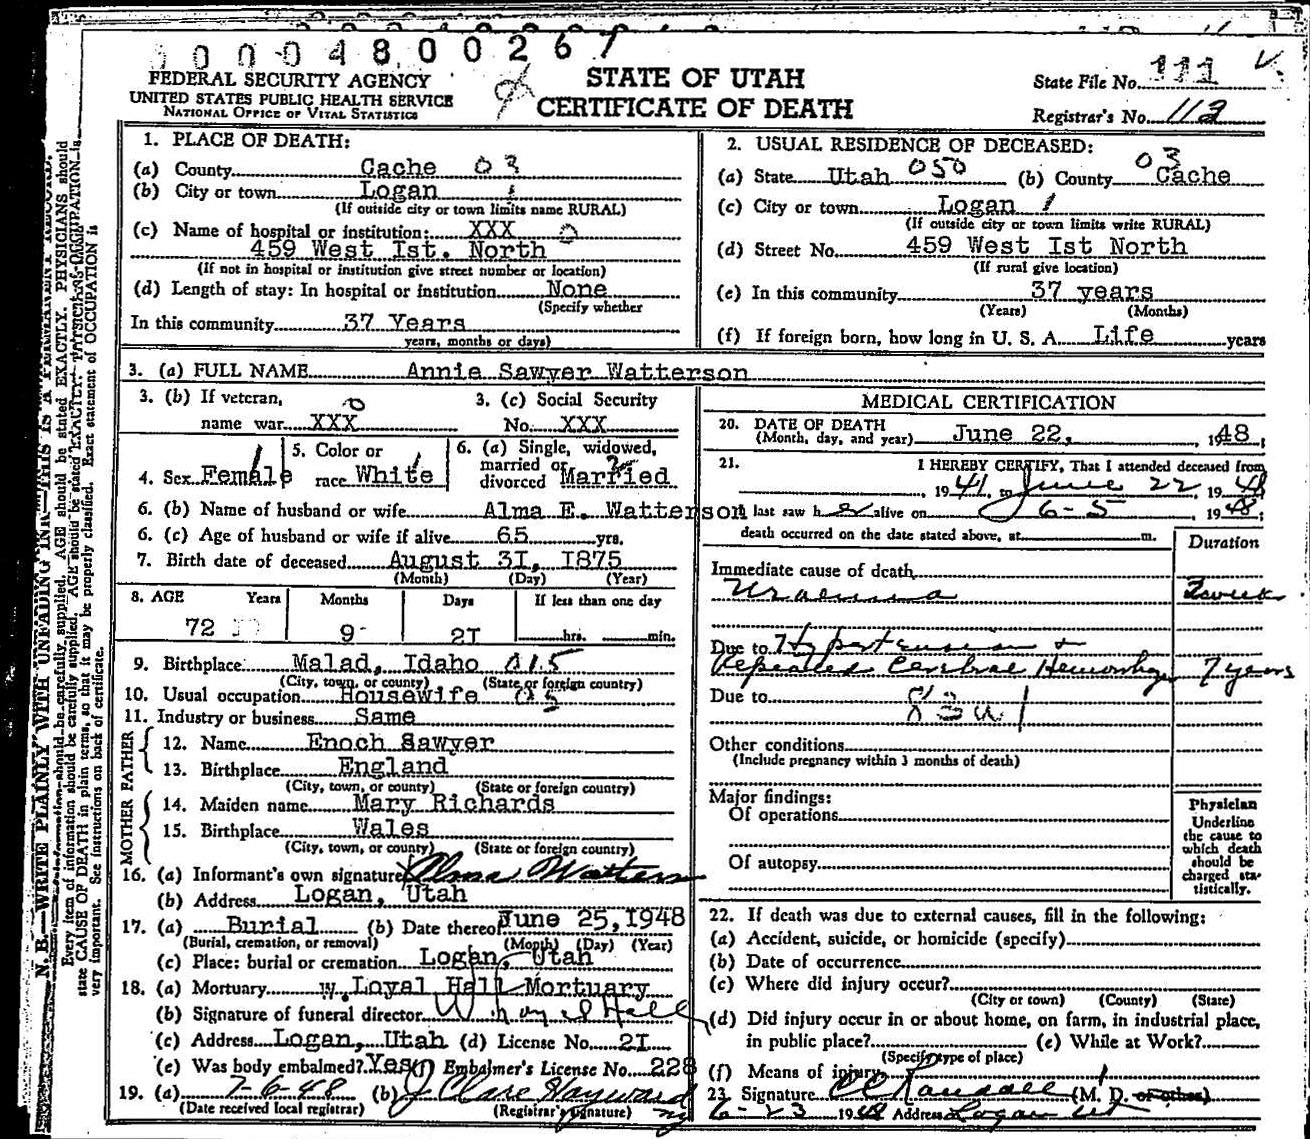 0 0 0 0 4 8 0 0 2 6 7
FEDERAL SECURITY AGENCY
UNITED STATES PUBLIC HEALTH SERVICE
NATIONAL OFFICE OF VITAL STATISTICS
STATE OF UTAH
CERTIFICATE OF DEATH
State File No. 111
Registrar's No. 112
1. PLACE OF DEATH:
(a) County Cache 03
(b) City or town Logan 1
(If outside city or town limits name RURAL)
(c) Name of hospital or institution: XXX 0
459 West Ist. North
(If not in hospital or institution give street number or location)
(d) Length of stay: In hospital or institution None
(Specify whether
In this community 37 Years
years, months or days)
2. USUAL RESIDENCE OF DECEASED:
(a) State Utah 050 (b) County 03 Cache
(c) City or town Logan 1
(If outside city or town limits write RURAL)
(d) Street No. 459 West Ist North
(If rural give location)
(e) In this community 37 years
(Years) (Months)
(f) If foreign born, how long in U. S. A. Life years
3. (a) FULL NAME Annie Sawyer Watterson
3. (b) If veteran, 3. (c) Social Security
name war XXX 0 No. XXX
4. Sex Female 5. Color or race White 6. (a) Single, widowed, married or divorced Married
6. (b) Name of husband or wife Alma E. Watterson
6. (c) Age of husband or wife if alive 65 yrs.
7. Birth date of deceased August 3I, I875
(Month) (Day) (Year)
8. AGE Years Months Days If less than one day
72 9 2I hrs. min.
9. Birthplace: Malad, Idaho 015
(City, town, or county) (State or foreign country)
10. Usual occupation Housewife
11. Industry or business Same
FATHER
12. Name Enoch Sawyer
13. Birthplace England
(City, town, or county) (State or foreign country)
MOTHER
14. Maiden name Mary Richards
15. Birthplace Wales
(City, town, or county) (State or foreign country)
16. (a) Informant's own signature Alma Watterson
(b) Address Logan, Utah
17. (a) Burial (b) Date thereof June 25, I948
(Burial, cremation, or removal) (Month) (Day) (Year)
(c) Place: burial or cremation Logan, Utah
18. (a) Mortuary W. Loyal Hall Mortuary
(b) Signature of funeral director W. Loyal Hall
(c) Address Logan, Utah (d) License No. 2I
(e) Was body embalmed? Yes (f) Embalmer's License No. 228
19. (a) 7-6-48 (b) J Clare Hayward
(Date received local registrar) (Registrar's signature)
MEDICAL CERTIFICATION
20. DATE OF DEATH
(Month, day, and year) June 22, 1948;
21. I HEREBY CERTIFY, That I attended deceased from
1941, to June 22 1948
I last saw her alive on 6-5 1948;
death occurred on the date stated above, at m.
Duration
Immediate cause of death
Uraemia 2 weeks
Due to Hypertension +
Repeated Cerebral Hemorrhage 7 years
Due to
Other conditions
(Include pregnancy within 3 months of death)
Major findings:
Of operations
Of autopsy
Physician
Underline
the cause to
which death
should be
charged sta-
tistically.
22. If death was due to external causes, fill in the following:
(a) Accident, suicide, or homicide (specify)
(b) Date of occurrence
(c) Where did injury occur?
(City or town) (County) (State)
(d) Did injury occur in or about home, on farm, in industrial place,
in public place? (e) While at Work?
(Specify type of place)
(f) Means of injury
23. Signature OC Randall (M. D. or other)
6-23 1948 Address Logan Ut
N. B.—WRITE PLAINLY WITH UNFADING INK—THIS IS A PERMANENT RECORD.
Every item of information should be carefully supplied. AGE should be stated EXACTLY. PHYSICIANS should
state CAUSE OF DEATH in plain terms, so that it may be properly classified. Exact statement of OCCUPATION is
very important. See instructions on back of certificate.